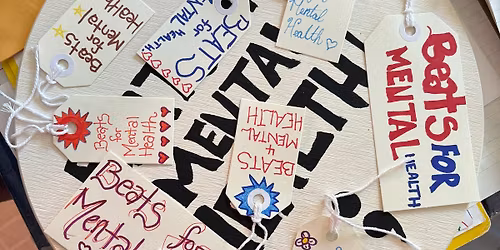 Beats
for
Mental
Health
BEATS
for
MENTAL
HEALTH
Mental
Health
Beats FOR
MENTAL
HEALTH
Beats
for
Mental
Health
BEATS
4
MENTAL
HEALTH
MENTAL
HEALTH
Beats
for
Mental